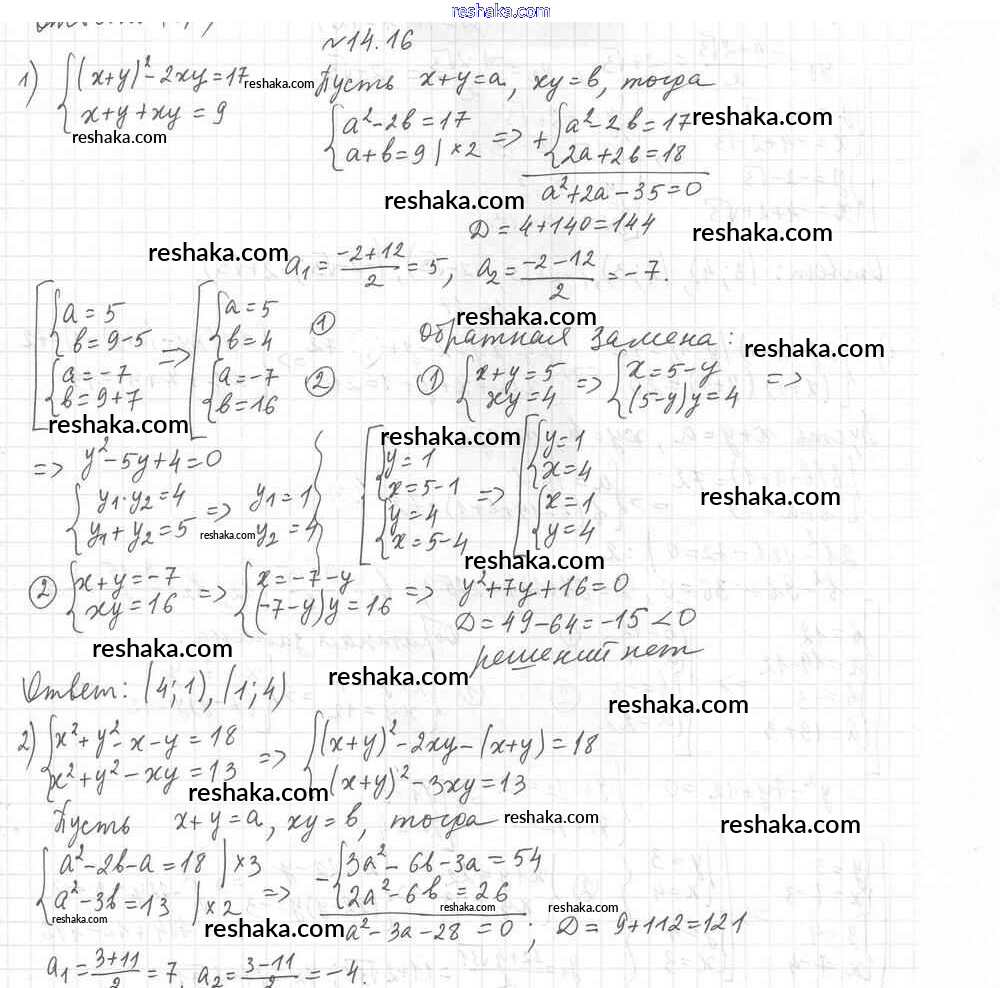 reshaka.com
№14.16
1) { (x+y)² - 2xy = 17 reshaka.com Пусть x+y=a, xy=b, тогда
x+y+xy = 9
reshaka.com
{ a²-2b=17 a+b=9 | ×2 => + { a²-2b=17 2a+2b=18 reshaka.com
reshaka.com a²+2a-35=0
D = 4+140=144 reshaka.com
reshaka.com a₁ = (-2+12)/2 = 5, a₂ = (-2-12)/2 = -7.
reshaka.com
[ { a=5 b=9-5 { a=-7 b=9+7 => [ { a=5 b=4 ① { a=-7 b=16 ②
Обратная замена: reshaka.com
① { x+y=5 xy=4 => { x=5-y (5-y)y=4 =>
reshaka.com reshaka.com
=> y²-5y+4=0
{ y₁·y₂=4 y₁+y₂=5 => reshaka.com y₁=1 y₂=4 } [ { y=1 x=5-1 { y=4 x=5-4 => [ { y=1 x=4 { x=1 y=4 reshaka.com
reshaka.com
② { x+y=-7 xy=16 => { x=-7-y (-7-y)y=16 => y²+7y+16=0
D=49-64=-15<0
reshaka.com решений нет
Ответ: (4;1), (1;4) reshaka.com
reshaka.com
2) { x²+y²-x-y=18 x²+y²-xy=13 => { (x+y)²-2xy-(x+y)=18 (x+y)²-3xy=13
reshaka.com
Пусть x+y=a, xy=b, тогда reshaka.com
reshaka.com
{ a²-2b-a=18 | ×3 a²-3b=13 | ×2 => - { 3a²-6b-3a=54 2a²-6b=26
reshaka.com reshaka.com reshaka.com
reshaka.com a²-3a-28=0; D=9+112=121
a₁ = (3+11)/2 = 7, a₂ = (3-11)/2 = -4.